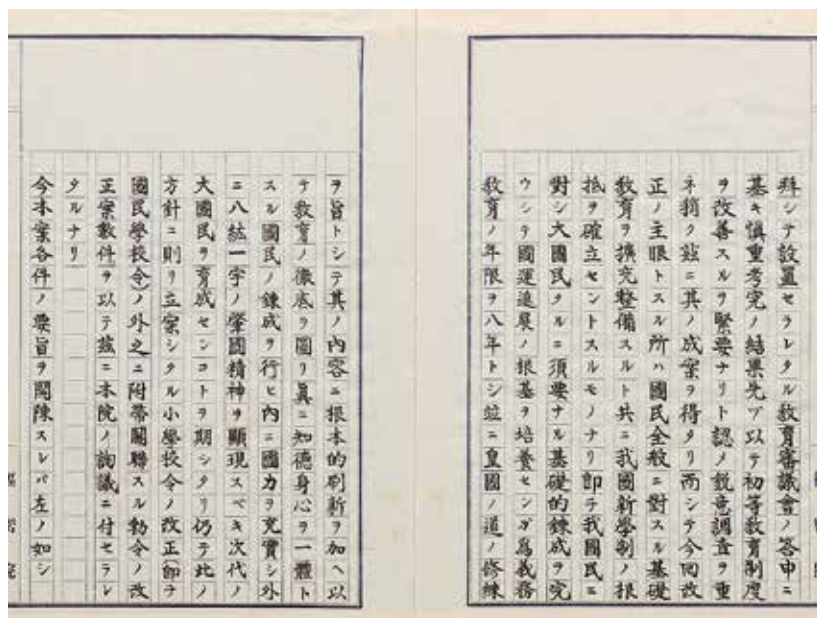 拜シテ設置セラレタル教育審議會ノ答申ニ
基キ愼重考究ノ結果先ヅ以テ初等教育制度
ヲ改善スルヲ緊要ナリト認メ鋭意調査ヲ重
ネ稍ク玆ニ其ノ成案ヲ得タリ而シテ今回改
正ノ主眼トスル所ハ國民全般ニ對スル基礎
教育ヲ擴充整備スルト共ニ我國新學制ノ根
抵ヲ確立セントスルモノナリ卽チ我國民ニ
對シ大國民タルニ須要ナル基礎的錬成ヲ完
ウシテ國運進展ノ根基ヲ培養センガ爲義務
教育ノ年限ヲ八年トシ竝ニ皇國ノ道ノ修練
ヲ旨トシテ其ノ內容ニ根本的刷新ヲ加ヘ以
テ教育ノ徹底ヲ圖リ眞ニ知德身心ヲ一體ト
スル國民ノ錬成ヲ行ヒ內ニ國力ヲ充實シ外
ニ八紘一宇ノ肇國精神ヲ顯現スベキ次代ノ
大國民ヲ育成センコトヲ期シタリ仍テ此ノ
方針ニ則リ立案シタル小學校令ノ改正(卽チ
國民學校令)ノ外之ニ附帶關聯スル勅令ノ改
正案數件ヲ以テ玆ニ本院ノ詢議ニ付セラレ
タルナリ
今本案各件ノ要旨ヲ開陳スレバ左ノ如シ